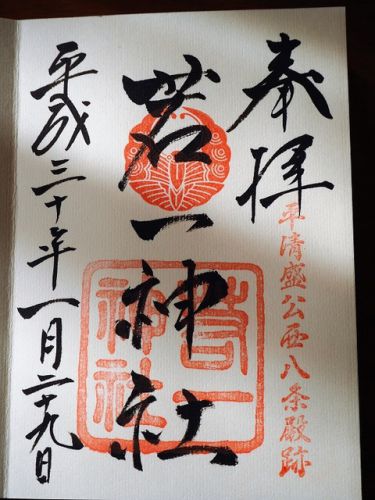 奉拝
平清盛公西八条殿跡
若一神社
若一
神社
平成三十年一月二十九日